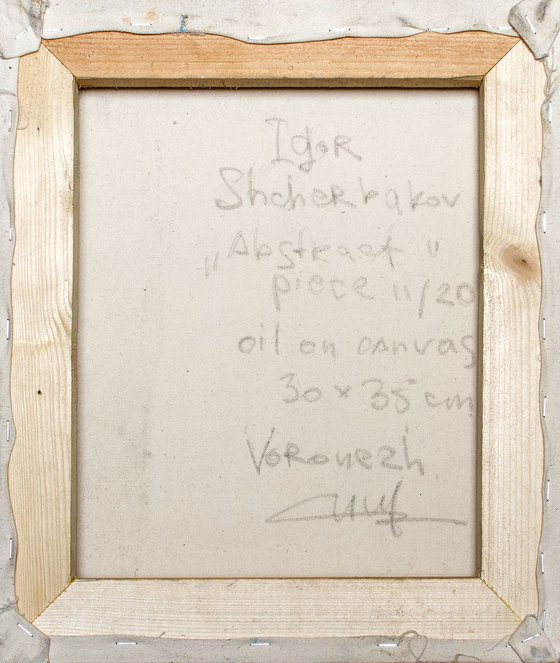 Igor
Shcherbakov
„Abstract"
piece 11/20
oil on canvas
30 x 35 cm
Voronezh